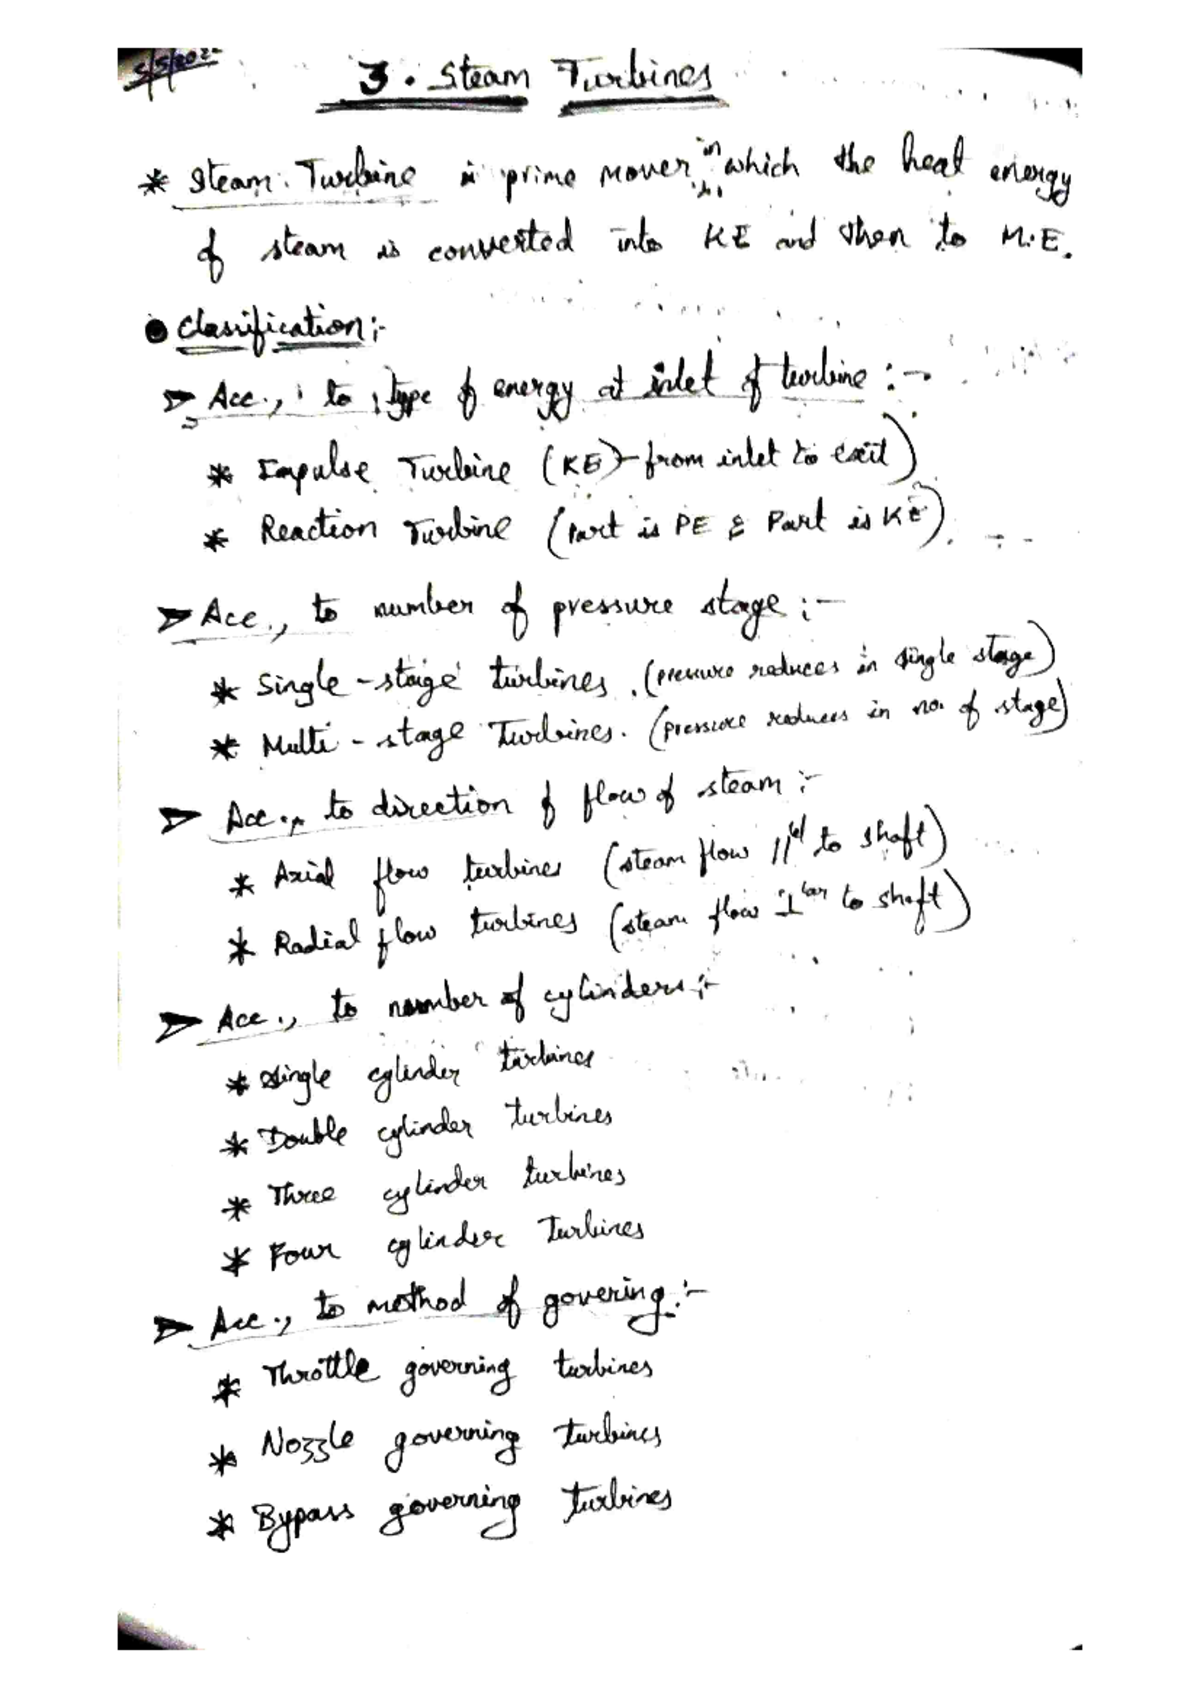 5/5/202
3. Steam Turbines
* Steam Turbine is prime mover in which the heat energy
of steam is converted into KE and then to M.E.
● Classification:-
➢ Acc., to type of energy at inlet of turbine :-
* Impulse Turbine (KE)-from inlet to exit)
* Reaction Turbine (Part is PE & Part is KE).
➢ Acc., to number of pressure stage :-
* Single-stage turbines. (pressure reduces in single stage)
* Multi-stage Turbines. (pressure reduces in no. of stage)
➢ Acc., to direction of flow of steam :-
* Axial flow turbines (steam flow ||el to shaft)
* Radial flow turbines (steam flow ⊥lar to shaft)
➢ Acc., to number of cylinders :-
* Single cylinder turbines
* Double cylinder turbines
* Three cylinder turbines
* Four cylinder Turbines
➢ Acc., to method of govering :-
* Throttle governing turbines
* Nozzle governing turbines
* Bypass governing turbines